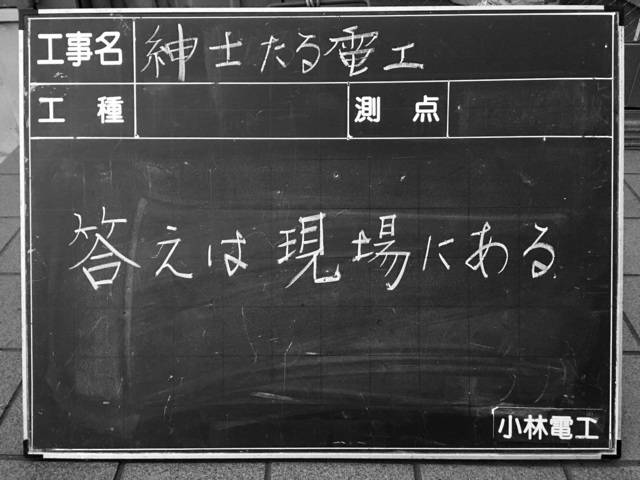 工事名 紳士たる電工
工種 測点
答えは現場にある
小林電工